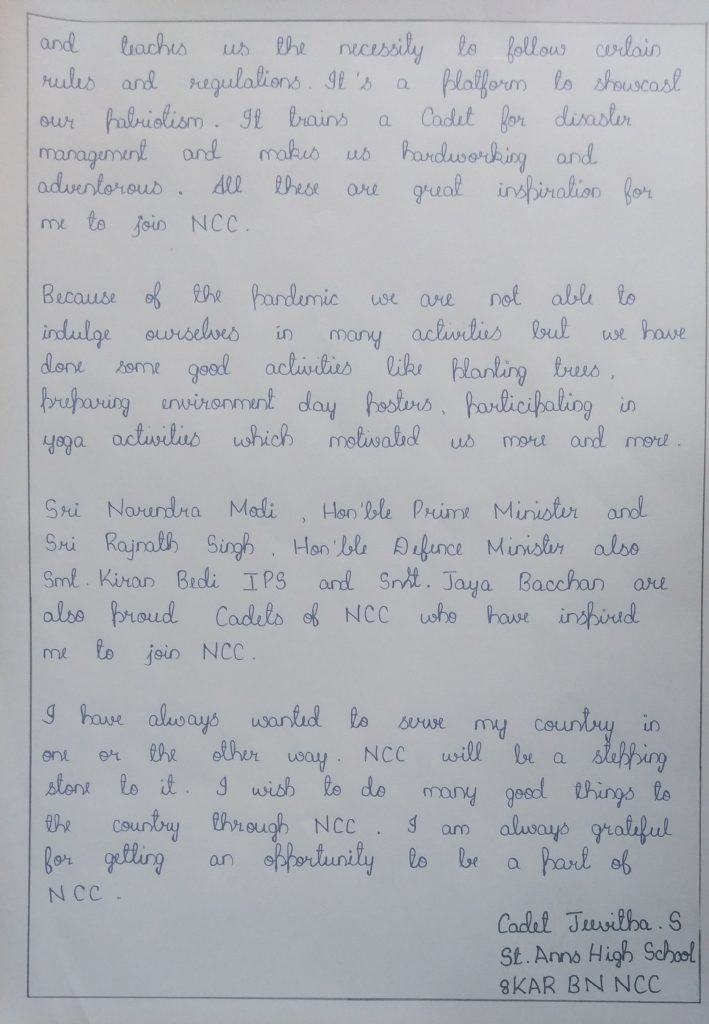 and teaches us the necessity to follow certain
rules and regulations. It's a platform to showcast
our patriotism. It trains a Cadet for disaster
management and makes us hardworking and
adventorous. All these are great inspiration for
me to join NCC.
Because of the pandemic we are not able to
indulge ourselves in many activities but we have
done some good activities like planting trees,
preparing environment day posters, participating in
yoga activities which motivated us more and more.
Sri Narendra Modi, Hon'ble Prime Minister and
Sri Rajnath Singh, Hon'ble Defence Minister also
Smt. Kiran Bedi IPS and Smt. Jaya Bacchan are
also proud Cadets of NCC who have inspired
me to join NCC.
I have always wanted to serve my country in
one or the other way. NCC will be a stepping
stone to it. I wish to do many good things to
the country through NCC. I am always grateful
for getting an opportunity to be a part of
NCC.
Cadet Jeevitha. S
St. Anns High School
8KAR BN NCC